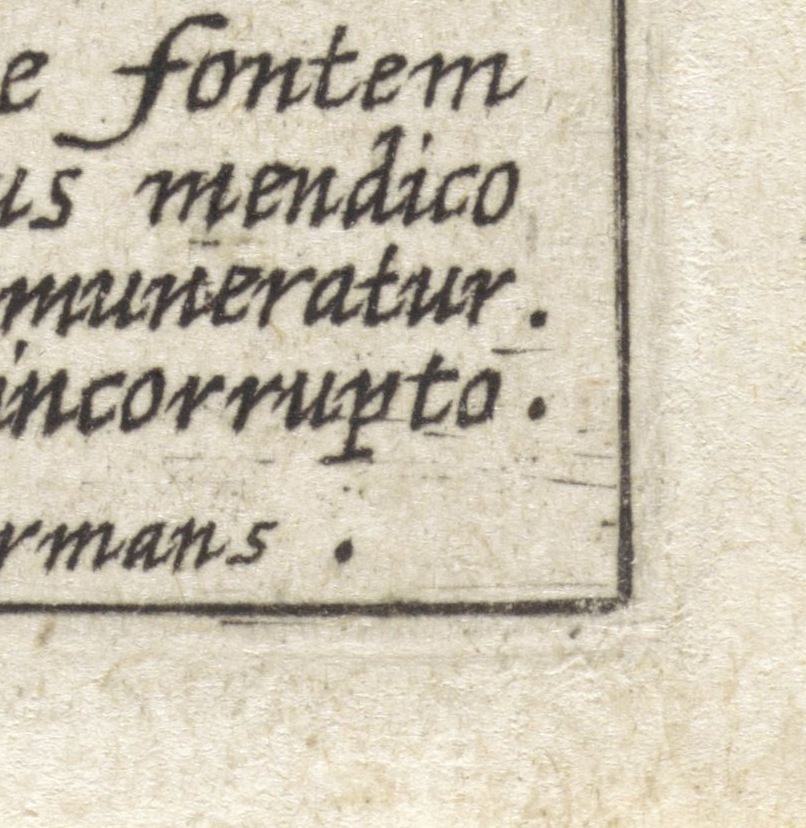 e fontem
us mendico
muneratur.
incorrupto.
rmans.